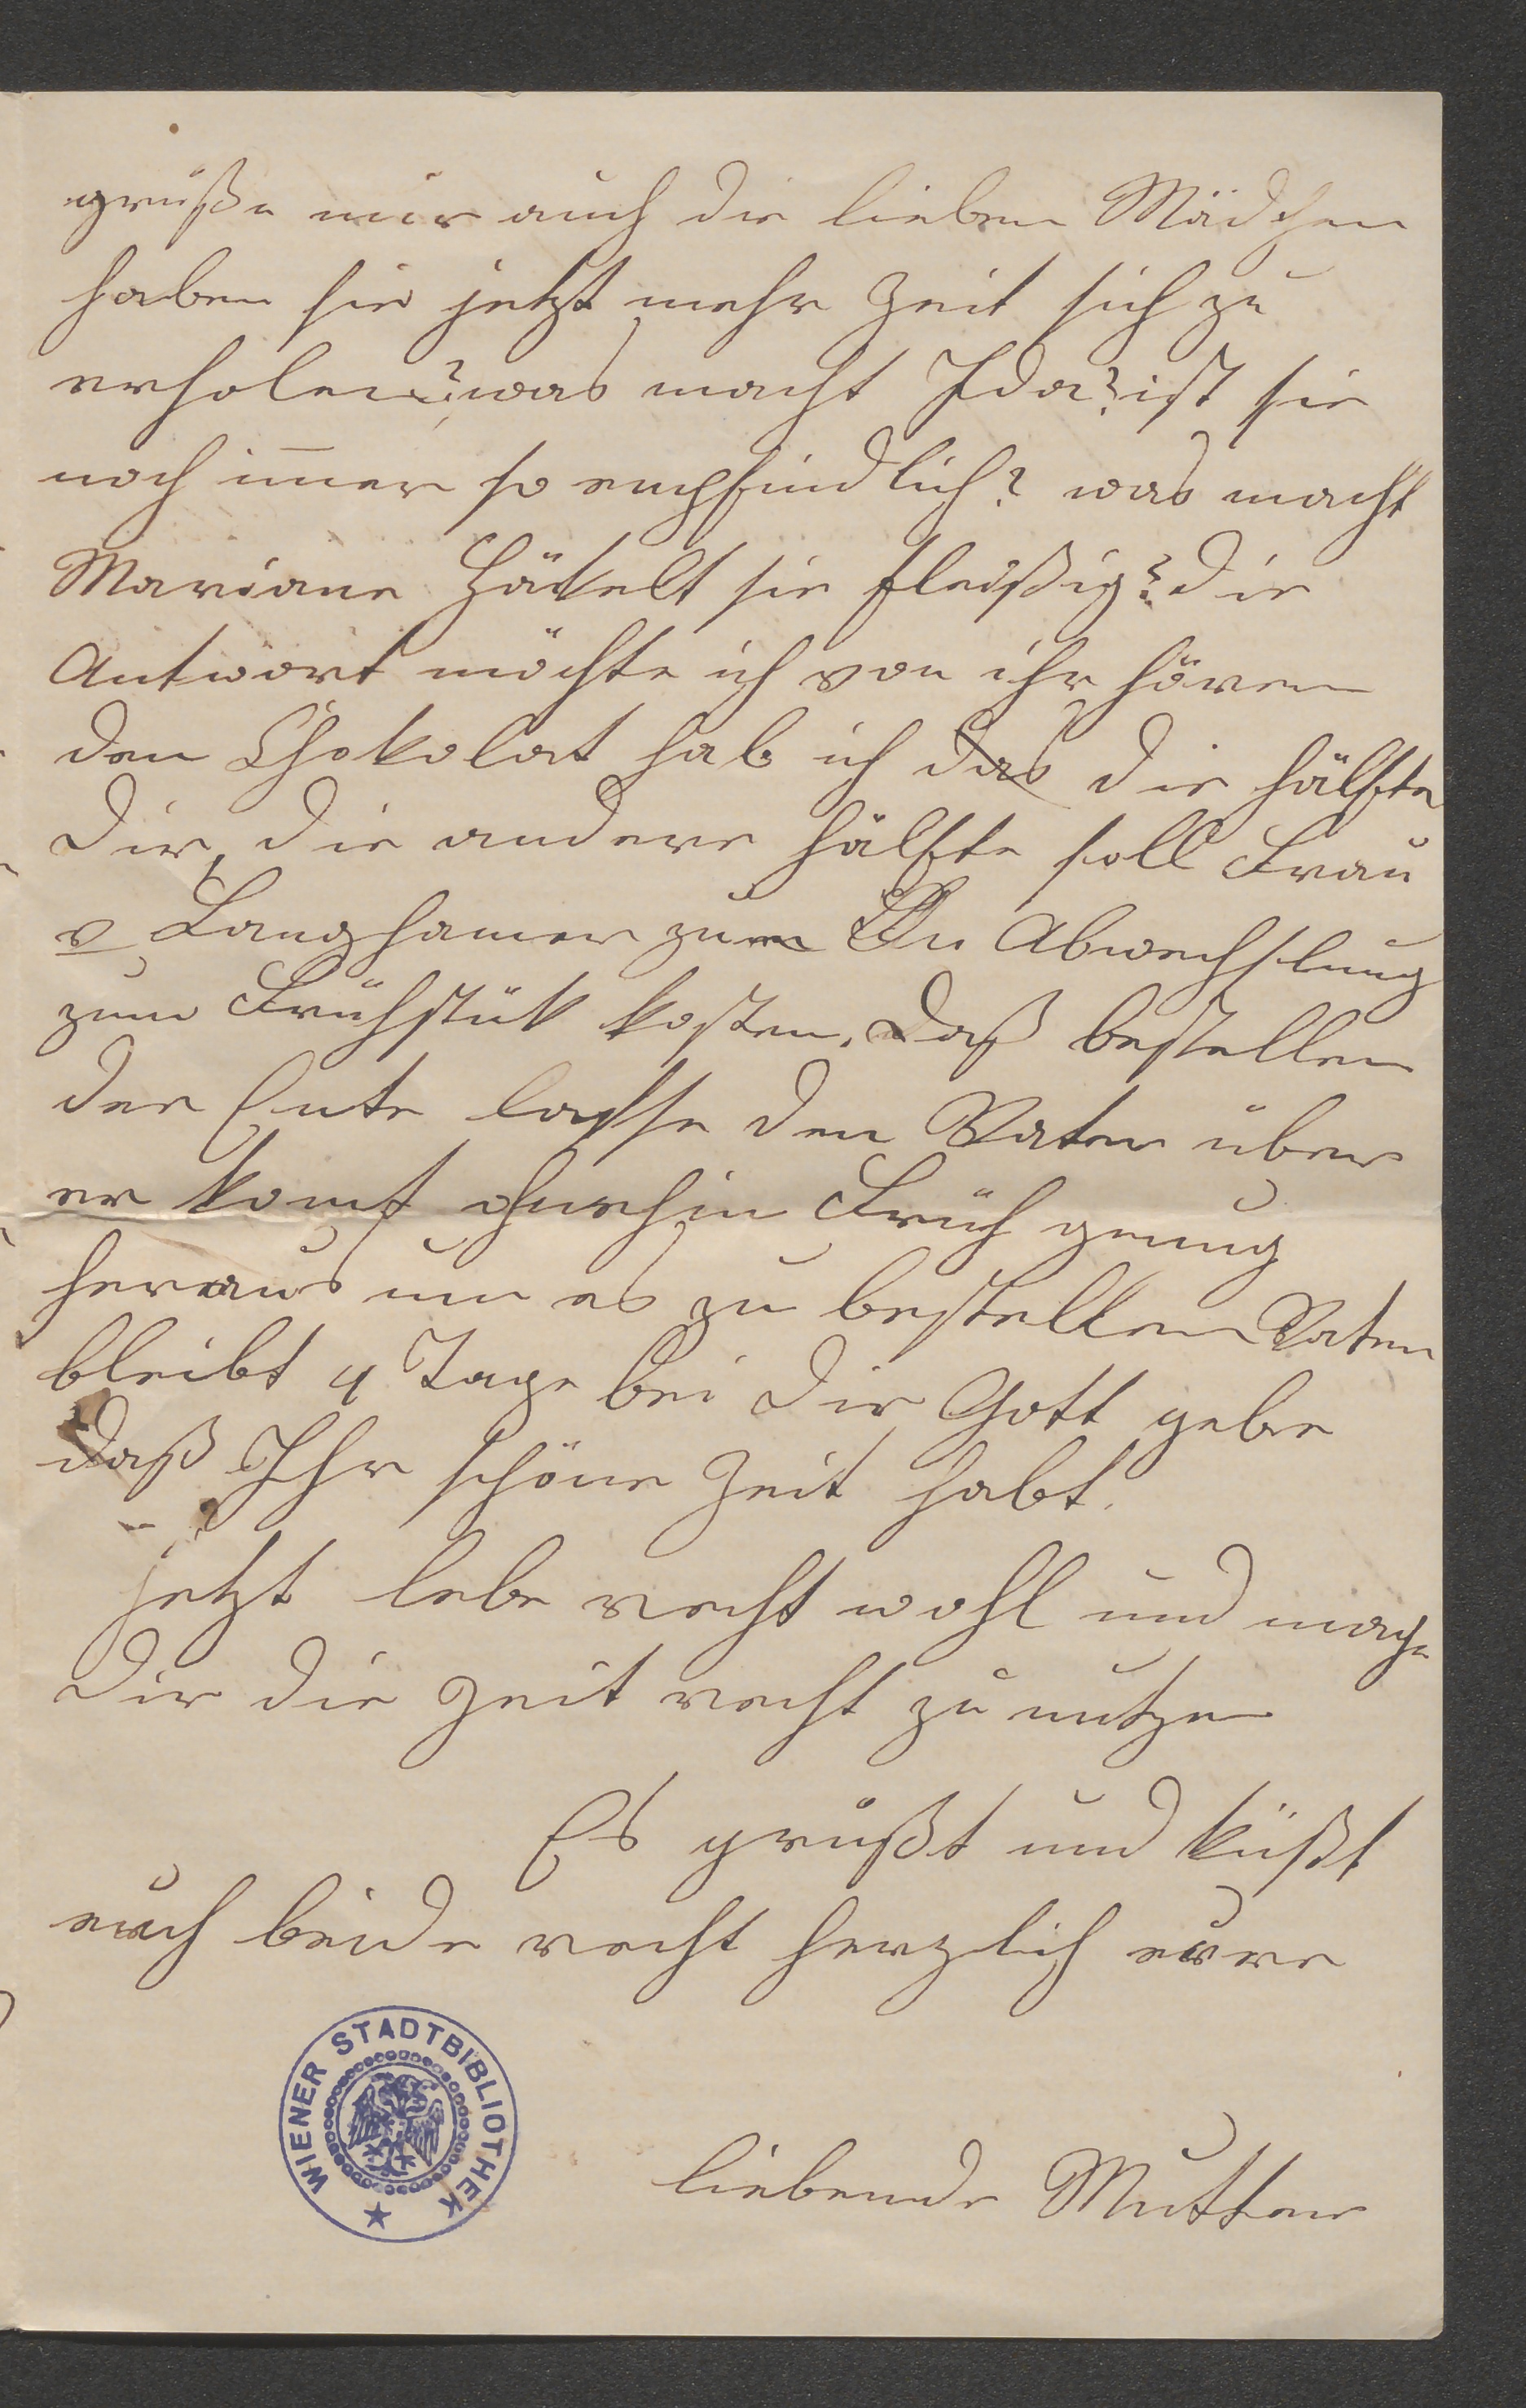 grüße mir auch die lieben Mädchen
haben sie jetzt mehr Zeit sich zu
erholen? was macht Ida? ist sie
noch im̄er so empfindlich? was macht
Mariane Häkelt sie fleißig? die
Antwort möchte ich von ihr hören
den Chokolat hab ich das die hälfte
Dir, die andere hälfte soll Frau
v Langhamer zum Abwechslung
zum Frühstük kosten. Daß bestellen
der Ente laße den Vater über
er komt ohnehin Früh genug
heraus um es zu bestellen Vater
bleibt 4 Tage bei Dir Gott gebe
daß Ihr schöne Zeit habt.
jetzt lebe recht wohl und mache
Dir die Zeit recht zu nutzen
Es grüßt und küßt
euch beide recht herzlich eure
liebende Mutter
WIENER STADTBIBLIOTHEK